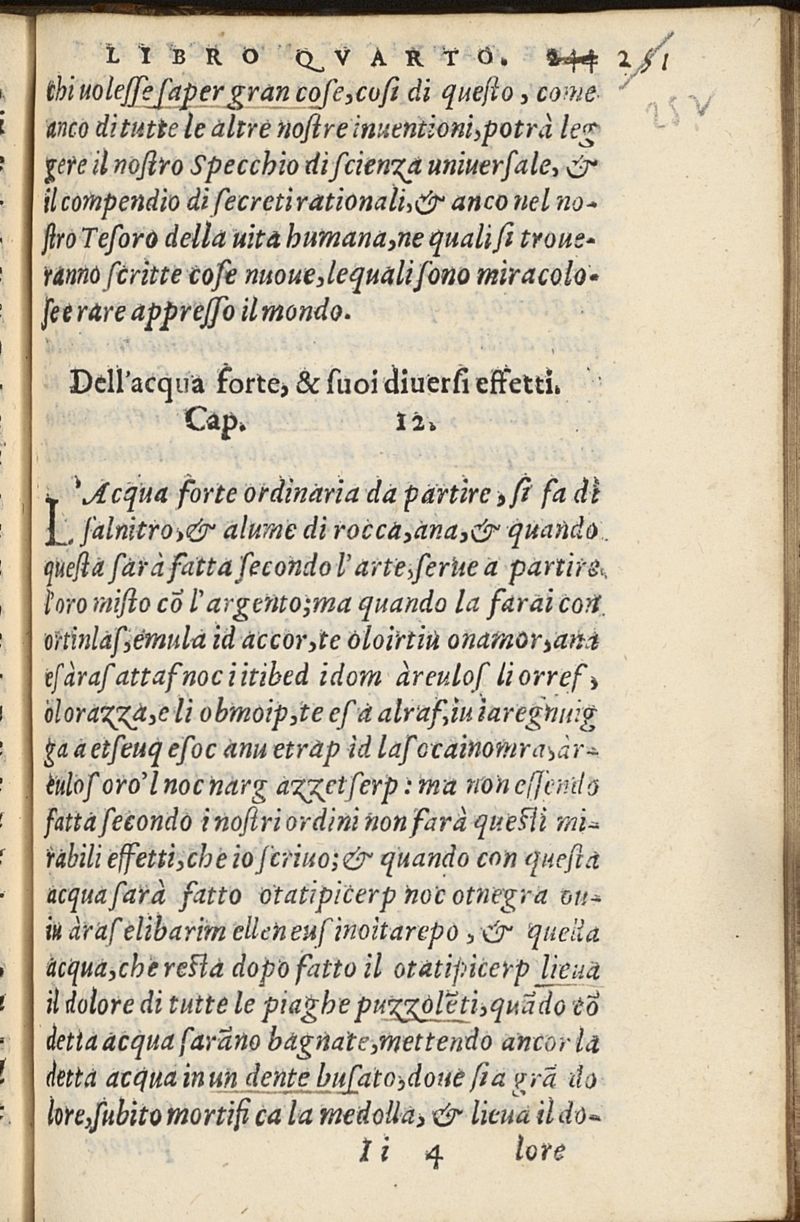 LIBRO QVARTO. 244 251
252
chi uolesse saper gran cose, cosi di questo, come
anco di tutte le altre nostre inuentioni, potrà leg
gere il nostro Specchio di scienza uniuersale, &
il compendio di secreti rationali, & anco nel no-
stro Tesoro della uita humana, ne quali si troue-
ranno scritte cose nuoue, lequali sono miracolo-
se e rare appresso il mondo.
Dell'acqua forte, & suoi diuersi effetti.
Cap. 12.
L'Acqua forte ordinaria da partire, si fa di
salnitro, & alume di rocca, ana, & quando
questa sarà fatta secondo l'arte, serue a partire
l'oro misto cõ l'argento; ma quando la farai con
ortinlas, emula id accor, te oloirtiu onamor, ana
esàras attaf noc i itibed idom àreulos li orref,
olorazza, e li obmoip, te esa alraf, iu iaregnuig
ga a etseuq esoc anu etrap id las ocainomra, àr-
eulos oro'l noc narg azzetserp: ma non essendo
fatta secondo i nostri ordini non farà questi mi-
rabili effetti, che io scriuo; & quando con questa
acqua sarà fatto otatipicerp noc otnegra ou-
iu àras elibarim ellen eus inoitarepo, & quella
acqua, che resta dopo fatto il otatipicerp lieua
il dolore di tutte le piaghe puzzolẽti, quãdo cõ
detta acqua sarãno bagnate, mettendo ancor la
detta acqua in un dente busato, doue sia grã do
lore, subito mortifi ca la medolla, & lieua il do-
Ii 4 lore